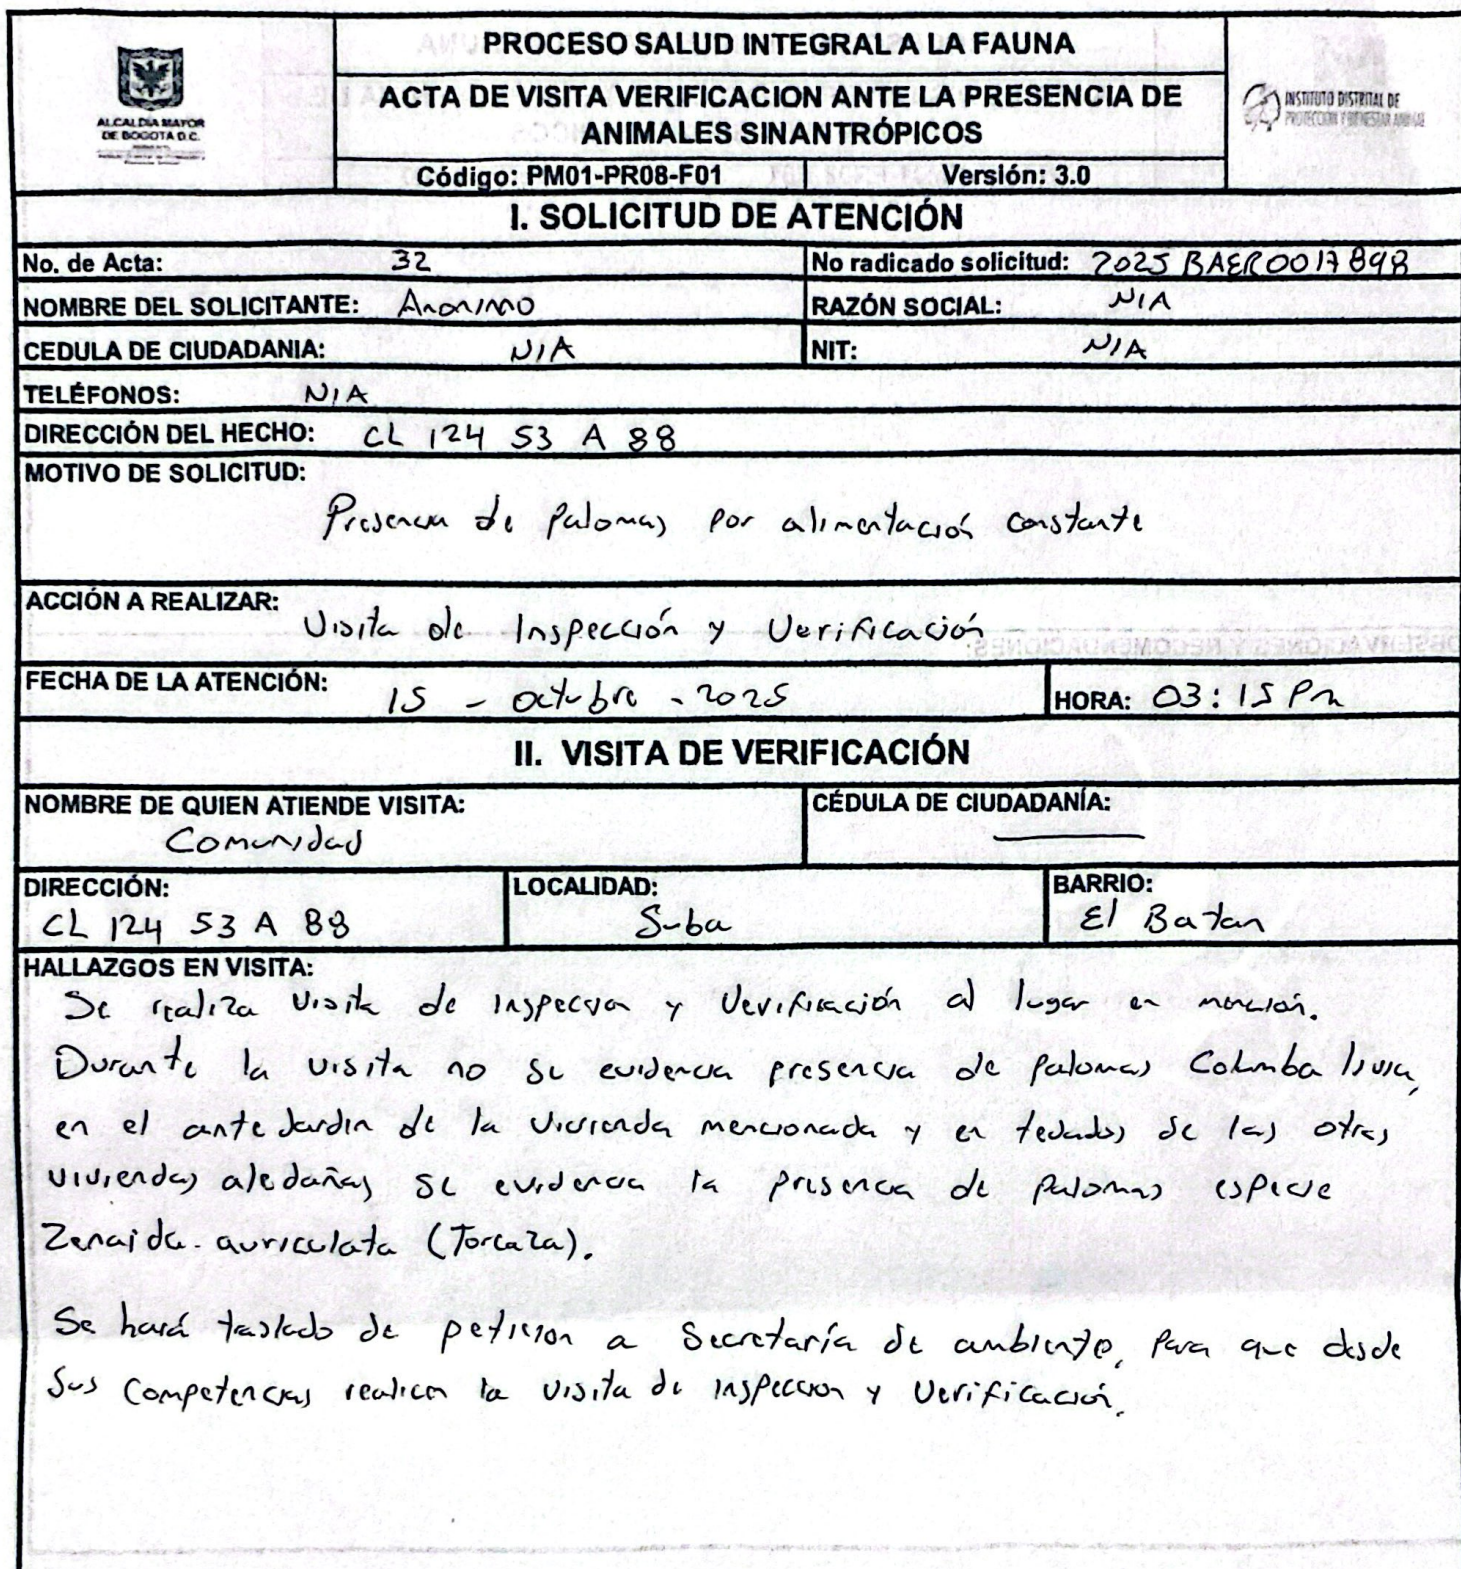 PROCESO SALUD INTEGRAL A LA FAUNA
ALCALDIA MAYOR
DE BOGOTA D.C.
ACTA DE VISITA VERIFICACION ANTE LA PRESENCIA DE
ANIMALES SINANTRÓPICOS
INSTITUTO DISTRITAL DE
PROTECCIÓN Y BIENESTAR ANIMAL
Código: PM01-PR08-F01 Versión: 3.0
I. SOLICITUD DE ATENCIÓN
No. de Acta: 32 No radicado solicitud: 2025BAER0017898
NOMBRE DEL SOLICITANTE: Anonimo RAZÓN SOCIAL: N/A
CEDULA DE CIUDADANIA: N/A NIT: N/A
TELÉFONOS: N/A
DIRECCIÓN DEL HECHO: CL 124 53 A 88
MOTIVO DE SOLICITUD:
Presencia de Palomas por alimentación constante
ACCIÓN A REALIZAR:
Visita de Inspección y Verificación
FECHA DE LA ATENCIÓN: 15 - octubre - 2025 HORA: 03:15 Pm
II. VISITA DE VERIFICACIÓN
NOMBRE DE QUIEN ATIENDE VISITA: CÉDULA DE CIUDADANÍA:
Comunidad
DIRECCIÓN: LOCALIDAD: BARRIO:
CL 124 53 A 88 Suba El Batan
HALLAZGOS EN VISITA:
Se realiza visita de inspeccion y Verificación al lugar en mención.
Durante la visita no se evidencia presencia de palomas Columba livia,
en el antejardin de la vivienda mencionada y en tejados de las otras
viviendas aledañas se evidencia la presencia de palomas especie
Zenaida auriculata (Torcaza).
Se hará traslado de peticion a Secretaría de ambiente, para que desde
sus competencias realicen la visita de inspeccion y Verificación.